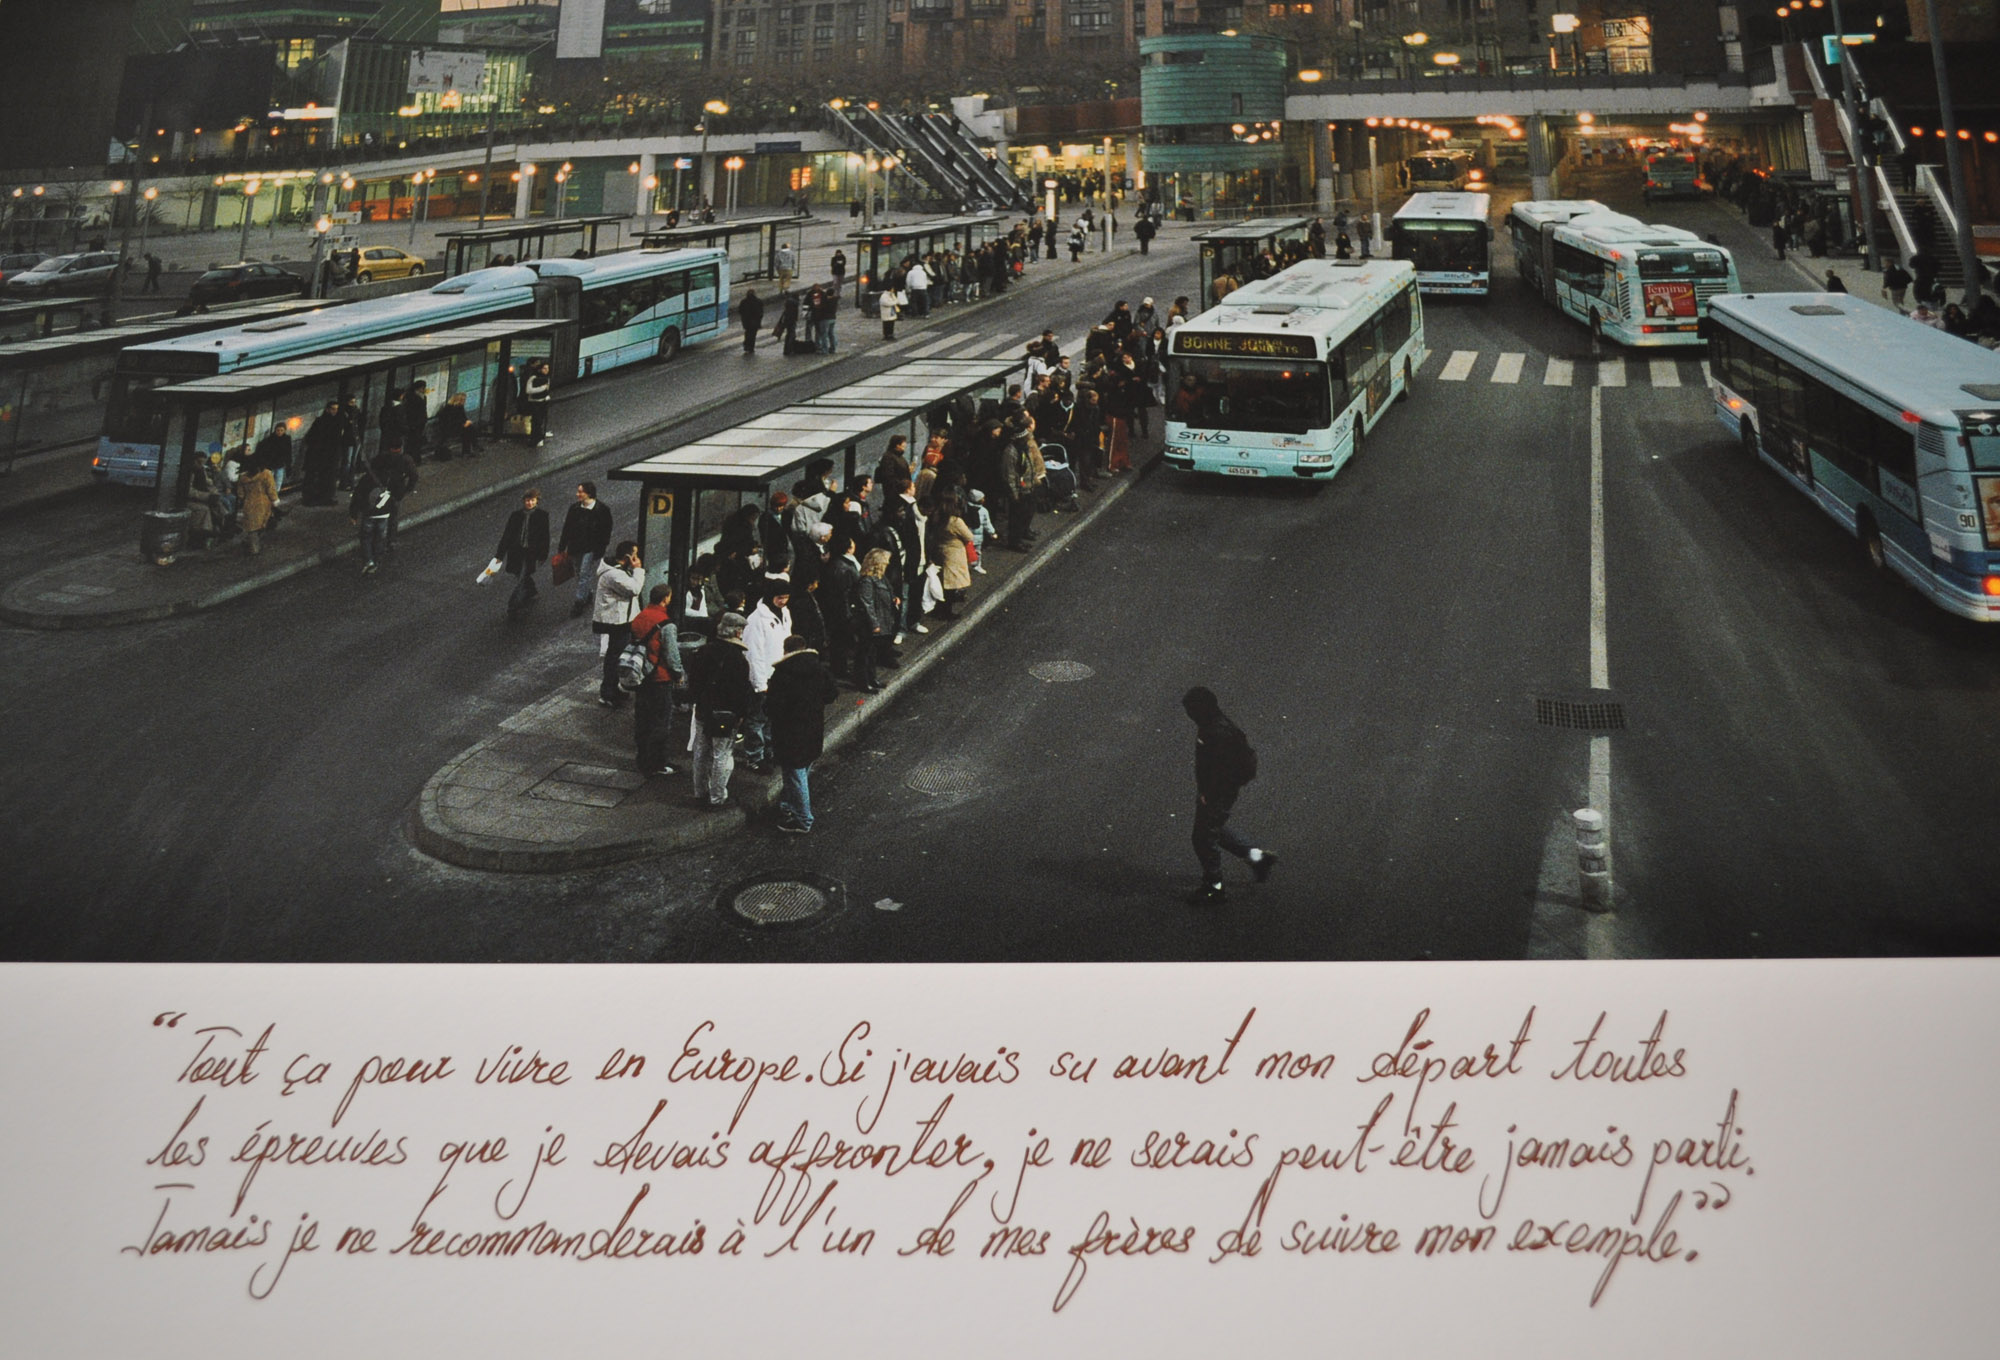 FAC-I
femina
BONNE
STIVO
D
D
90
“Tout ça pour vivre en Europe. Si j'avais su avant mon départ toutes
les épreuves que je devais affronter, je ne serais peut-être jamais parti.
Jamais je ne recommanderais à l'un de mes frères de suivre mon exemple.”